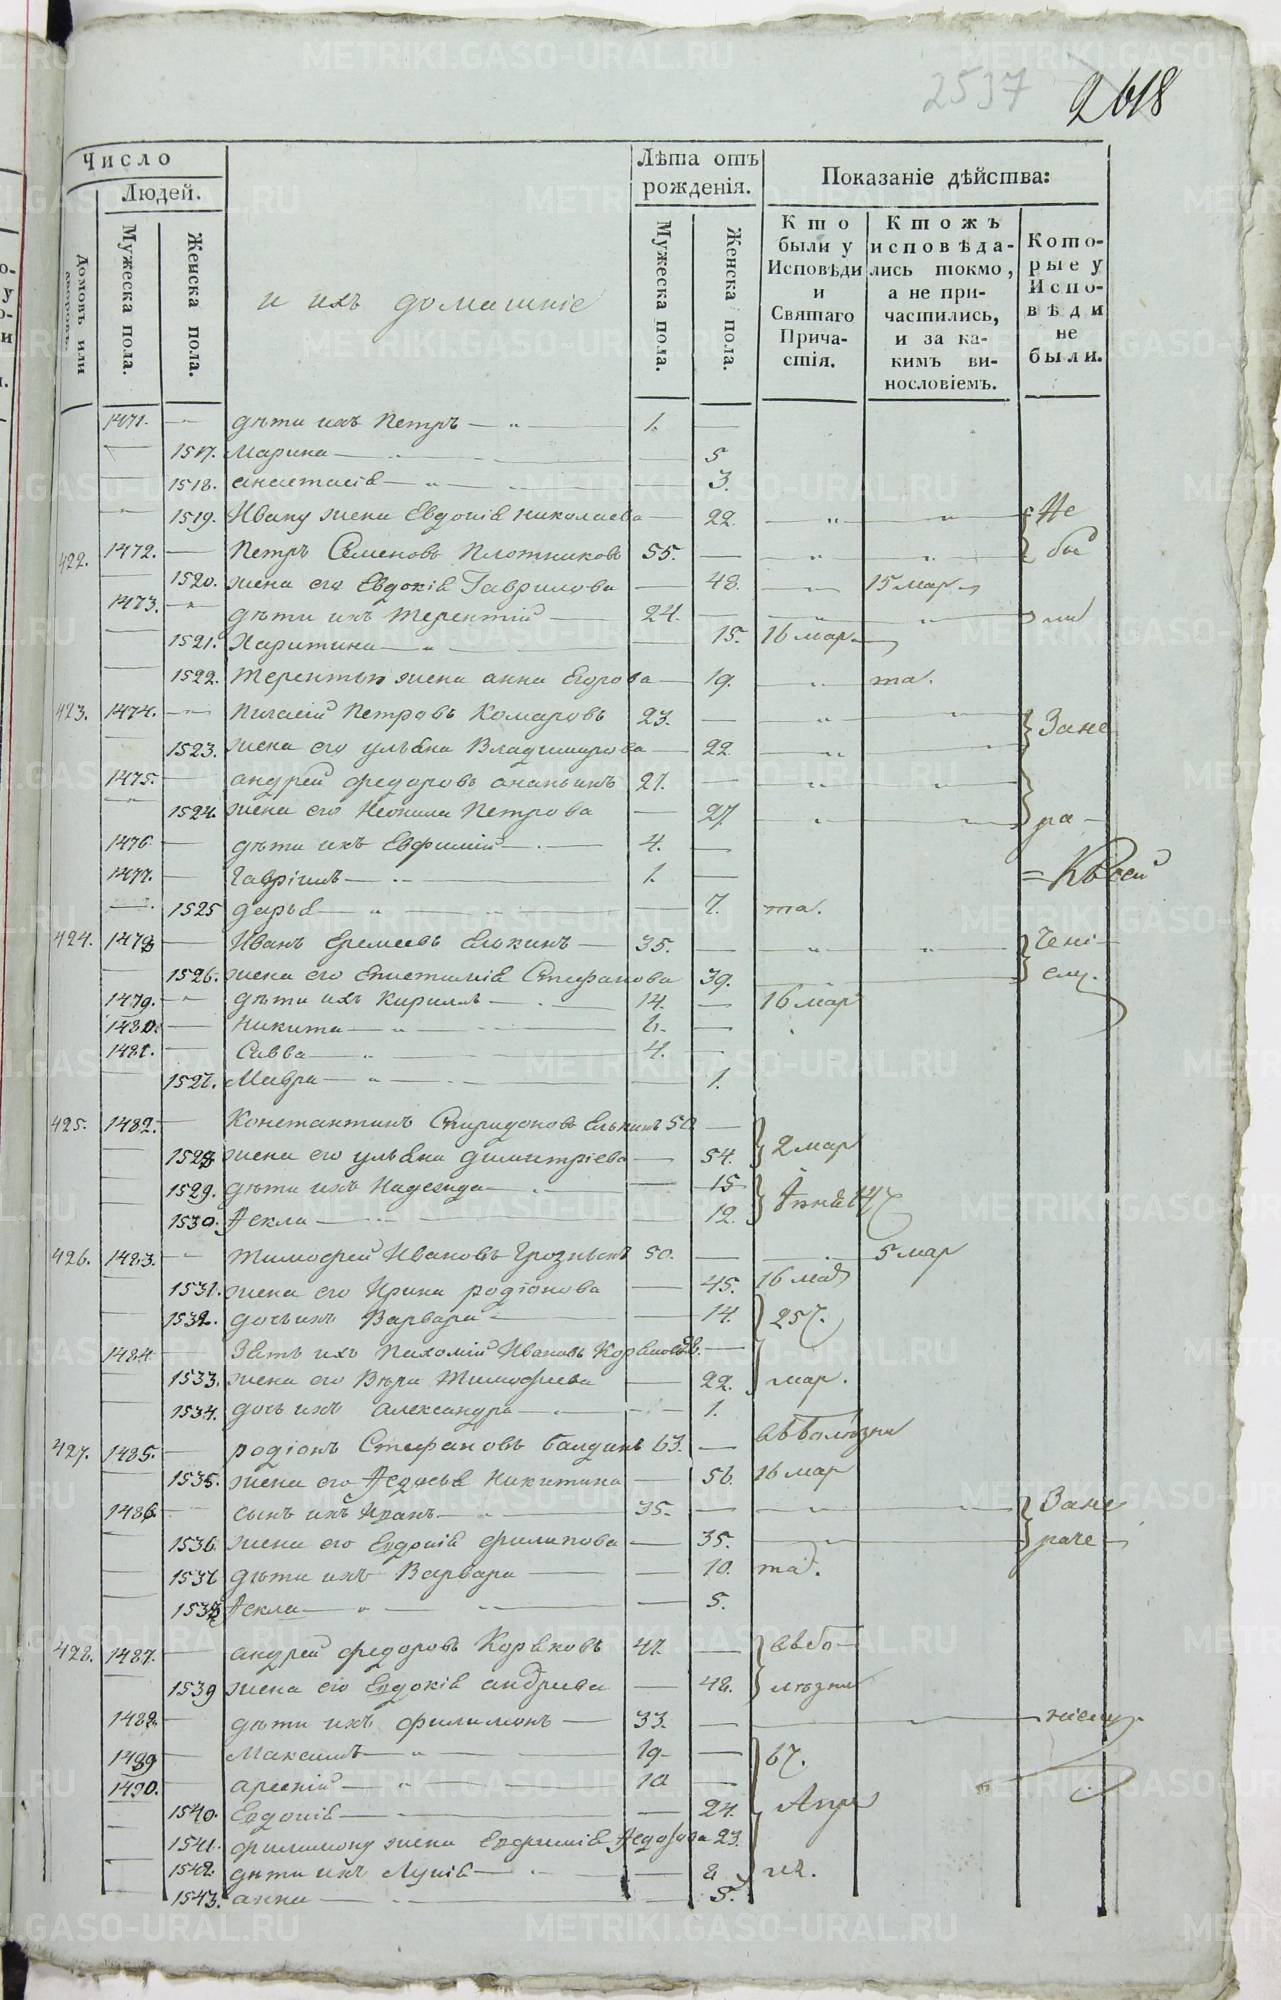 2537 2618
Число
Людей.
Домовъ или дворовъ.
Мужеска пола.
Женска пола.
и ихъ домашніе
Лѣта отъ рожденія.
Мужеска пола.
Женска пола.
Показаніе дѣйства:
Кто были у Исповѣди и Святаго Причастія.
Ктожъ исповѣдались токмо, а не причастились, и за какимъ винословіемъ.
Которые у Исповѣди не были.
1471. — дѣти ихъ Петръ — 1. —
— 1517. Марина — 5
— 1518. анастасія — 3.
1519. Ивану жена Евдокія Николаева — 22. — Не
422. 1472. — Петръ Семеновъ Плотниковъ 55. — бы
— 1520. жена его Евдокія Гаврилова — 48. — 15 мар
1473. — дѣти ихъ Терентій — 24. — ли
— 1521. Харитина — 15. 16 мар
— 1522. Терентья жена анна Егорова — 19. — та.
423. 1474. — Петровъ Комаровъ 23. — Зане
— 1523. жена его ульяна Владимирова — 22
1475. — андрей федоровъ ананьинъ 27. —
1524. жена его Неонила Петрова — 27. — ра
1476. — дѣти ихъ Евфимій — 4. —
1477. — Гавріилъ — 1. —
— 1525 дарья — 7. та.
424. 1478 — Иванъ Еремеевъ Елькинъ — 35. — чені
— 1526. жена его Епистимія Стефанова 39. — ему.
1479. — дѣти ихъ Кириллъ — 14. — 16 мар
1480. — Никита —
1481. — Савва — 4. —
— 1527. Мавра — 1.
425. 1482. — Константинъ Спиридоновъ Елькинъ 50 — 2 мар
— 1528 жена его ульяна димитріева — 54.
— 1529. дѣти ихъ Надежда — 15
— 1530. Ѳекла — 12.
426. 1483. — Тимофей Ивановъ Грозныхъ 50. — 5 мар
— 1531. жена его Ирина родіонова — 45. 16 мар
— 1532. дочь ихъ Варвара — 14. 257.
1484 — Зять ихъ Пахомій Ивановъ Коряковъ —
— 1533. жена его Вѣра Тимофеева — 22. мар.
— 1534. дочь ихъ Александра — 1.
427. 1485. — родіонъ Стефановъ балдинъ 63. —
— 1535. жена его Ѳедосья Никитина — 56. 16 мар
1486. — сынъ ихъ Иванъ — 35. — Зане
— 1536. жена его Евдокія филипова — 35. — раче
— 1537 дѣти ихъ Варвара — 10. та.
— 1538 Ѳекла — 5.
428. 1487. — андрей федоровъ Коряковъ 47. —
1539 жена его Евдокія андреева — 48. лѣзни
1488. — дѣти ихъ филимонъ — 33. — ніему.
1489 — Максимъ — 19 — 67.
1490. — арсеній — 10 —
1540. Евдокія — 24. Апре
— 1541. филимону жена Евфимія Ѳедорова 23.
— 1542. дѣти ихъ Лукія — 8 ля.
— 1543. анна — 5.